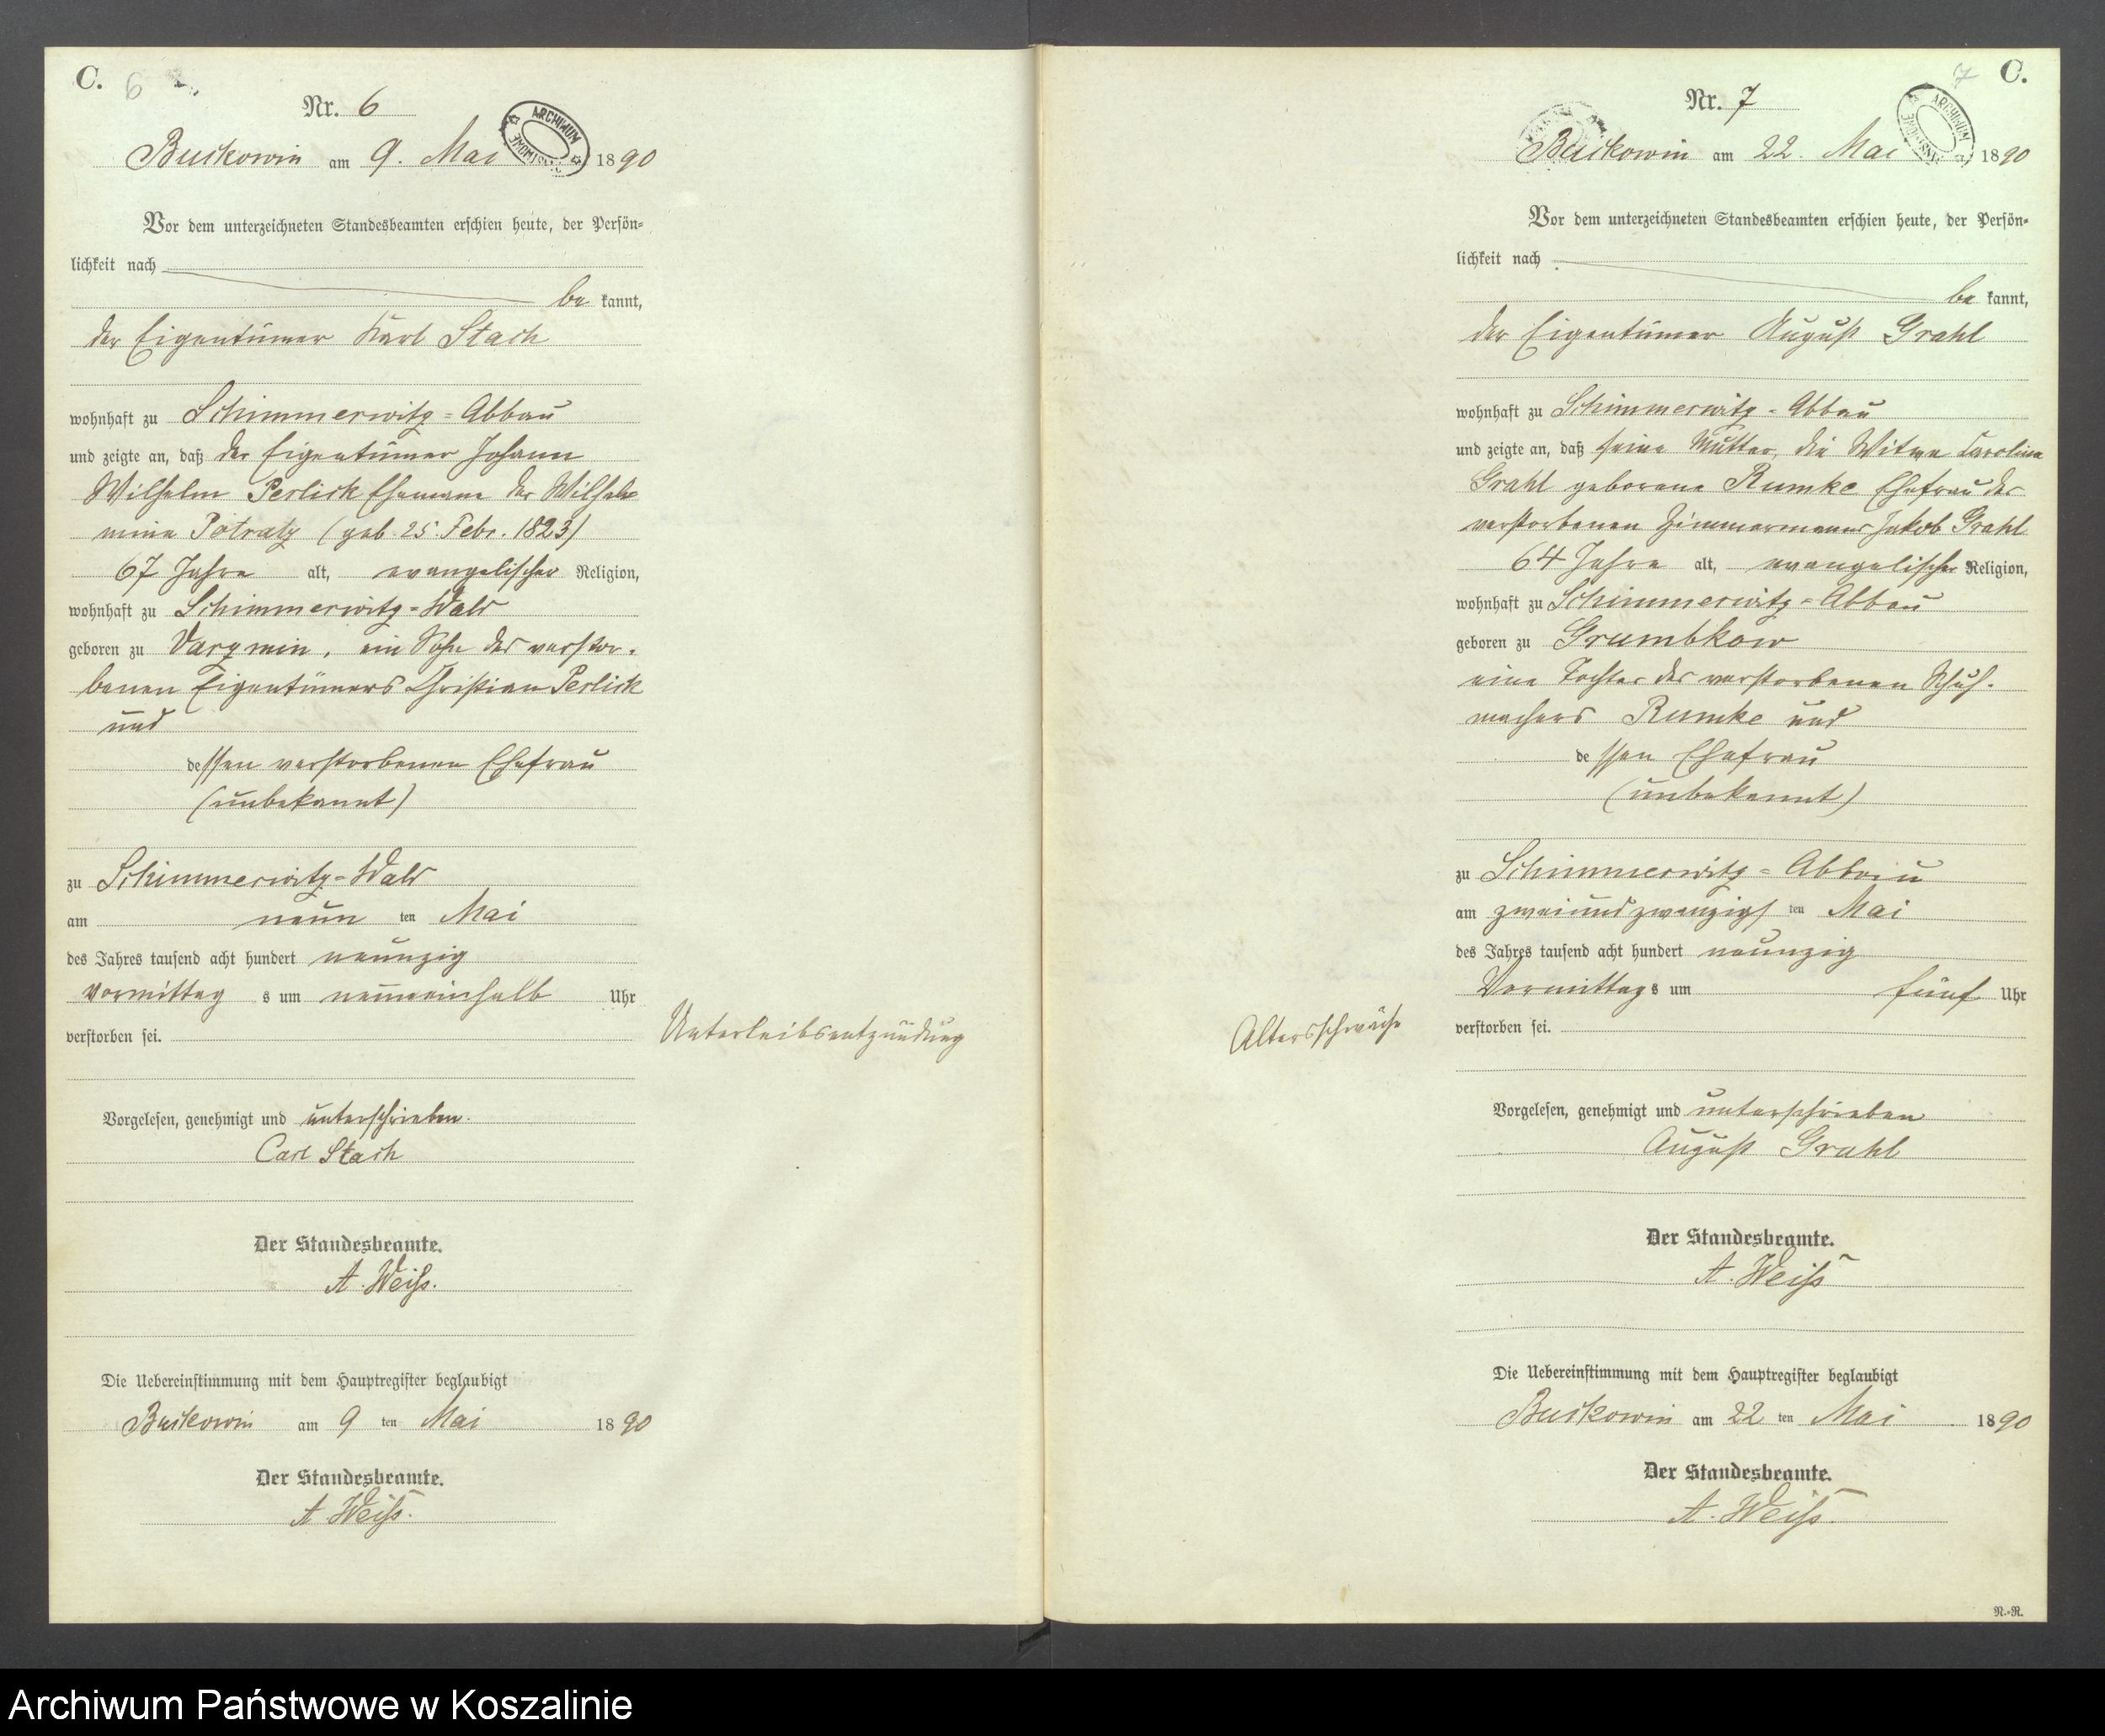 C. 6
Nr. 6
ARCHIWUM
Buckowin am 9. Mai 1890
Vor dem unterzeichneten Standesbeamten erschien heute, der Persön=
lichkeit nach
be kannt,
der Eigentümer Karl Stach
wohnhaft zu Schimmerwitz=Abbau
und zeigte an, daß der Eigentümer Johann
Wilhelm Perlick Ehemann der Wilhel
mine Potratz (geb. 25. Febr. 1823)
67 Jahre alt, evangelischer Religion,
wohnhaft zu Schimmerwitz=Wald
geboren zu Varzmin, ein Sohn des verstor-
benen Eigentümers Christian Perlick
und
dessen verstorbenen Ehefrau
(unbekannt)
zu Schimmerwitz=Wald
am neun ten Mai
des Jahres tausend acht hundert neunzig
Vormittag s um neuneinhalb Uhr
verstorben sei.
Unterleibsentzündung
Vorgelesen, genehmigt und unterschrieben.
Carl Stach
Der Standesbeamte.
A. Weiß.
Die Uebereinstimmung mit dem Hauptregister beglaubigt
Buckowin am 9 ten Mai 1890
Der Standesbeamte.
A. Weiß.
7 C.
Nr. 7
ARCHIWUM
Buckowin am 22. Mai 1890
Vor dem unterzeichneten Standesbeamten erschien heute, der Persön=
lichkeit nach
be kannt,
der Eigentümer August Grahl
wohnhaft zu Schimmerwitz=Abbau
und zeigte an, daß seine Mutter, die Witwe Caroline
Grahl geborene Rumke Ehefrau des
verstorbenen Zimmermanns Jakob Grahl
64 Jahre alt, evangelischer Religion,
wohnhaft zu Schimmerwitz=Abbau
geboren zu Grumbkow
eine Tochter des verstorbenen Schuh-
machers Rumke und
dessen Ehefrau
(unbekannt)
zu Schimmerwitz=Abbau
am zweiundzwanzigs ten Mai
des Jahres tausend acht hundert neunzig
Vormittags um fünf Uhr
verstorben sei.
Altersschwäche
Vorgelesen, genehmigt und unterschrieben
August Grahl
Der Standesbeamte.
A. Weiß
Die Uebereinstimmung mit dem Hauptregister beglaubigt
Buckowin am 22 ten Mai 1890
Der Standesbeamte.
A. Weiß.
N.=N.
Archiwum Państwowe w Koszalinie